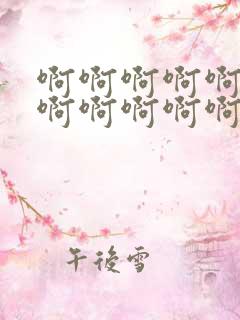 啊啊啊啊啊
啊啊啊啊啊
午後雪